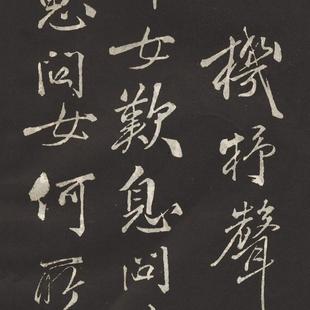 機杼聲
女歎息問
思問女何所